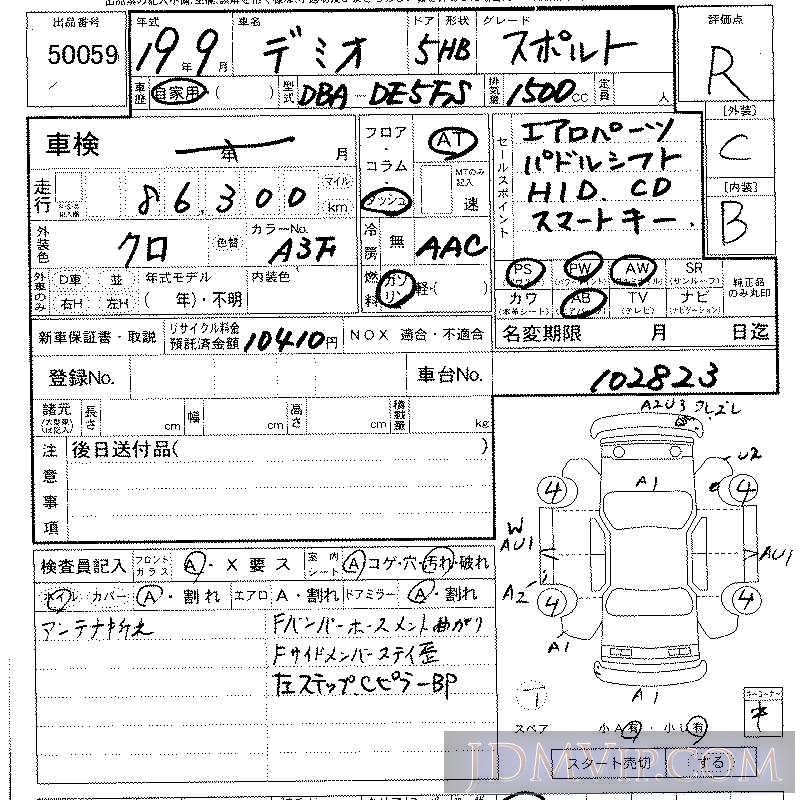 出品番号 年式 車名 ドア 形状 グレード 評価点
50059 19年9月 デミオ 5 HB スポルト R
車歴 自家用・( ) 型式 DBA-DE5FS 排気量 1500cc 定員 人
[外装]
C
[内装]
B
車検 年 月
走行 86,300 マイル km
外装色 クロ 色替 カラーNo. A3F
外車のみ D車 並 右H 左H 年式モデル ( 年)・不明 内装色
フロア・コラム・ダッシュ AT MTのみ記入 速
冷房 無 AAC
燃料 ガソリン 軽・( )
セールスポイント
エアロパーツ
パドルシフト
HID. CD
スマートキー.
PS PW AW SR (サンルーフ) 純正品のみ丸印
カワ (本革シート) AB (エアバッグ) TV (テレビ) ナビ (ナビゲーション)
新車保証書・取説 リサイクル料金預託済金額 10410円 NOX 適合・不適合
名変期限 月 日迄
登録No. 車台No. 102823
諸元 (大型車は記入) 長さ cm 幅 cm 高さ cm 積載量 kg
注意事項 後日送付品( )
A2U3 クレズレ
U2
A1
4 4
W
AU1 AU1
A2
4 4
A1
A1
1
スペア 小A有・小U有
検査員記入 フロントガラス A・X要ス 室内シート A コゲ・穴・汚れ・破れ
ホイル カバー A・割れ エアロ A・割れ ドアミラー A・割れ
アンテナ折れ
Fバンパーホースメント曲がり
Fサイドメンバーステイ歪
左ステップ.CピラーBP
コーナー
スタート売切 する
JDMVIP.COM